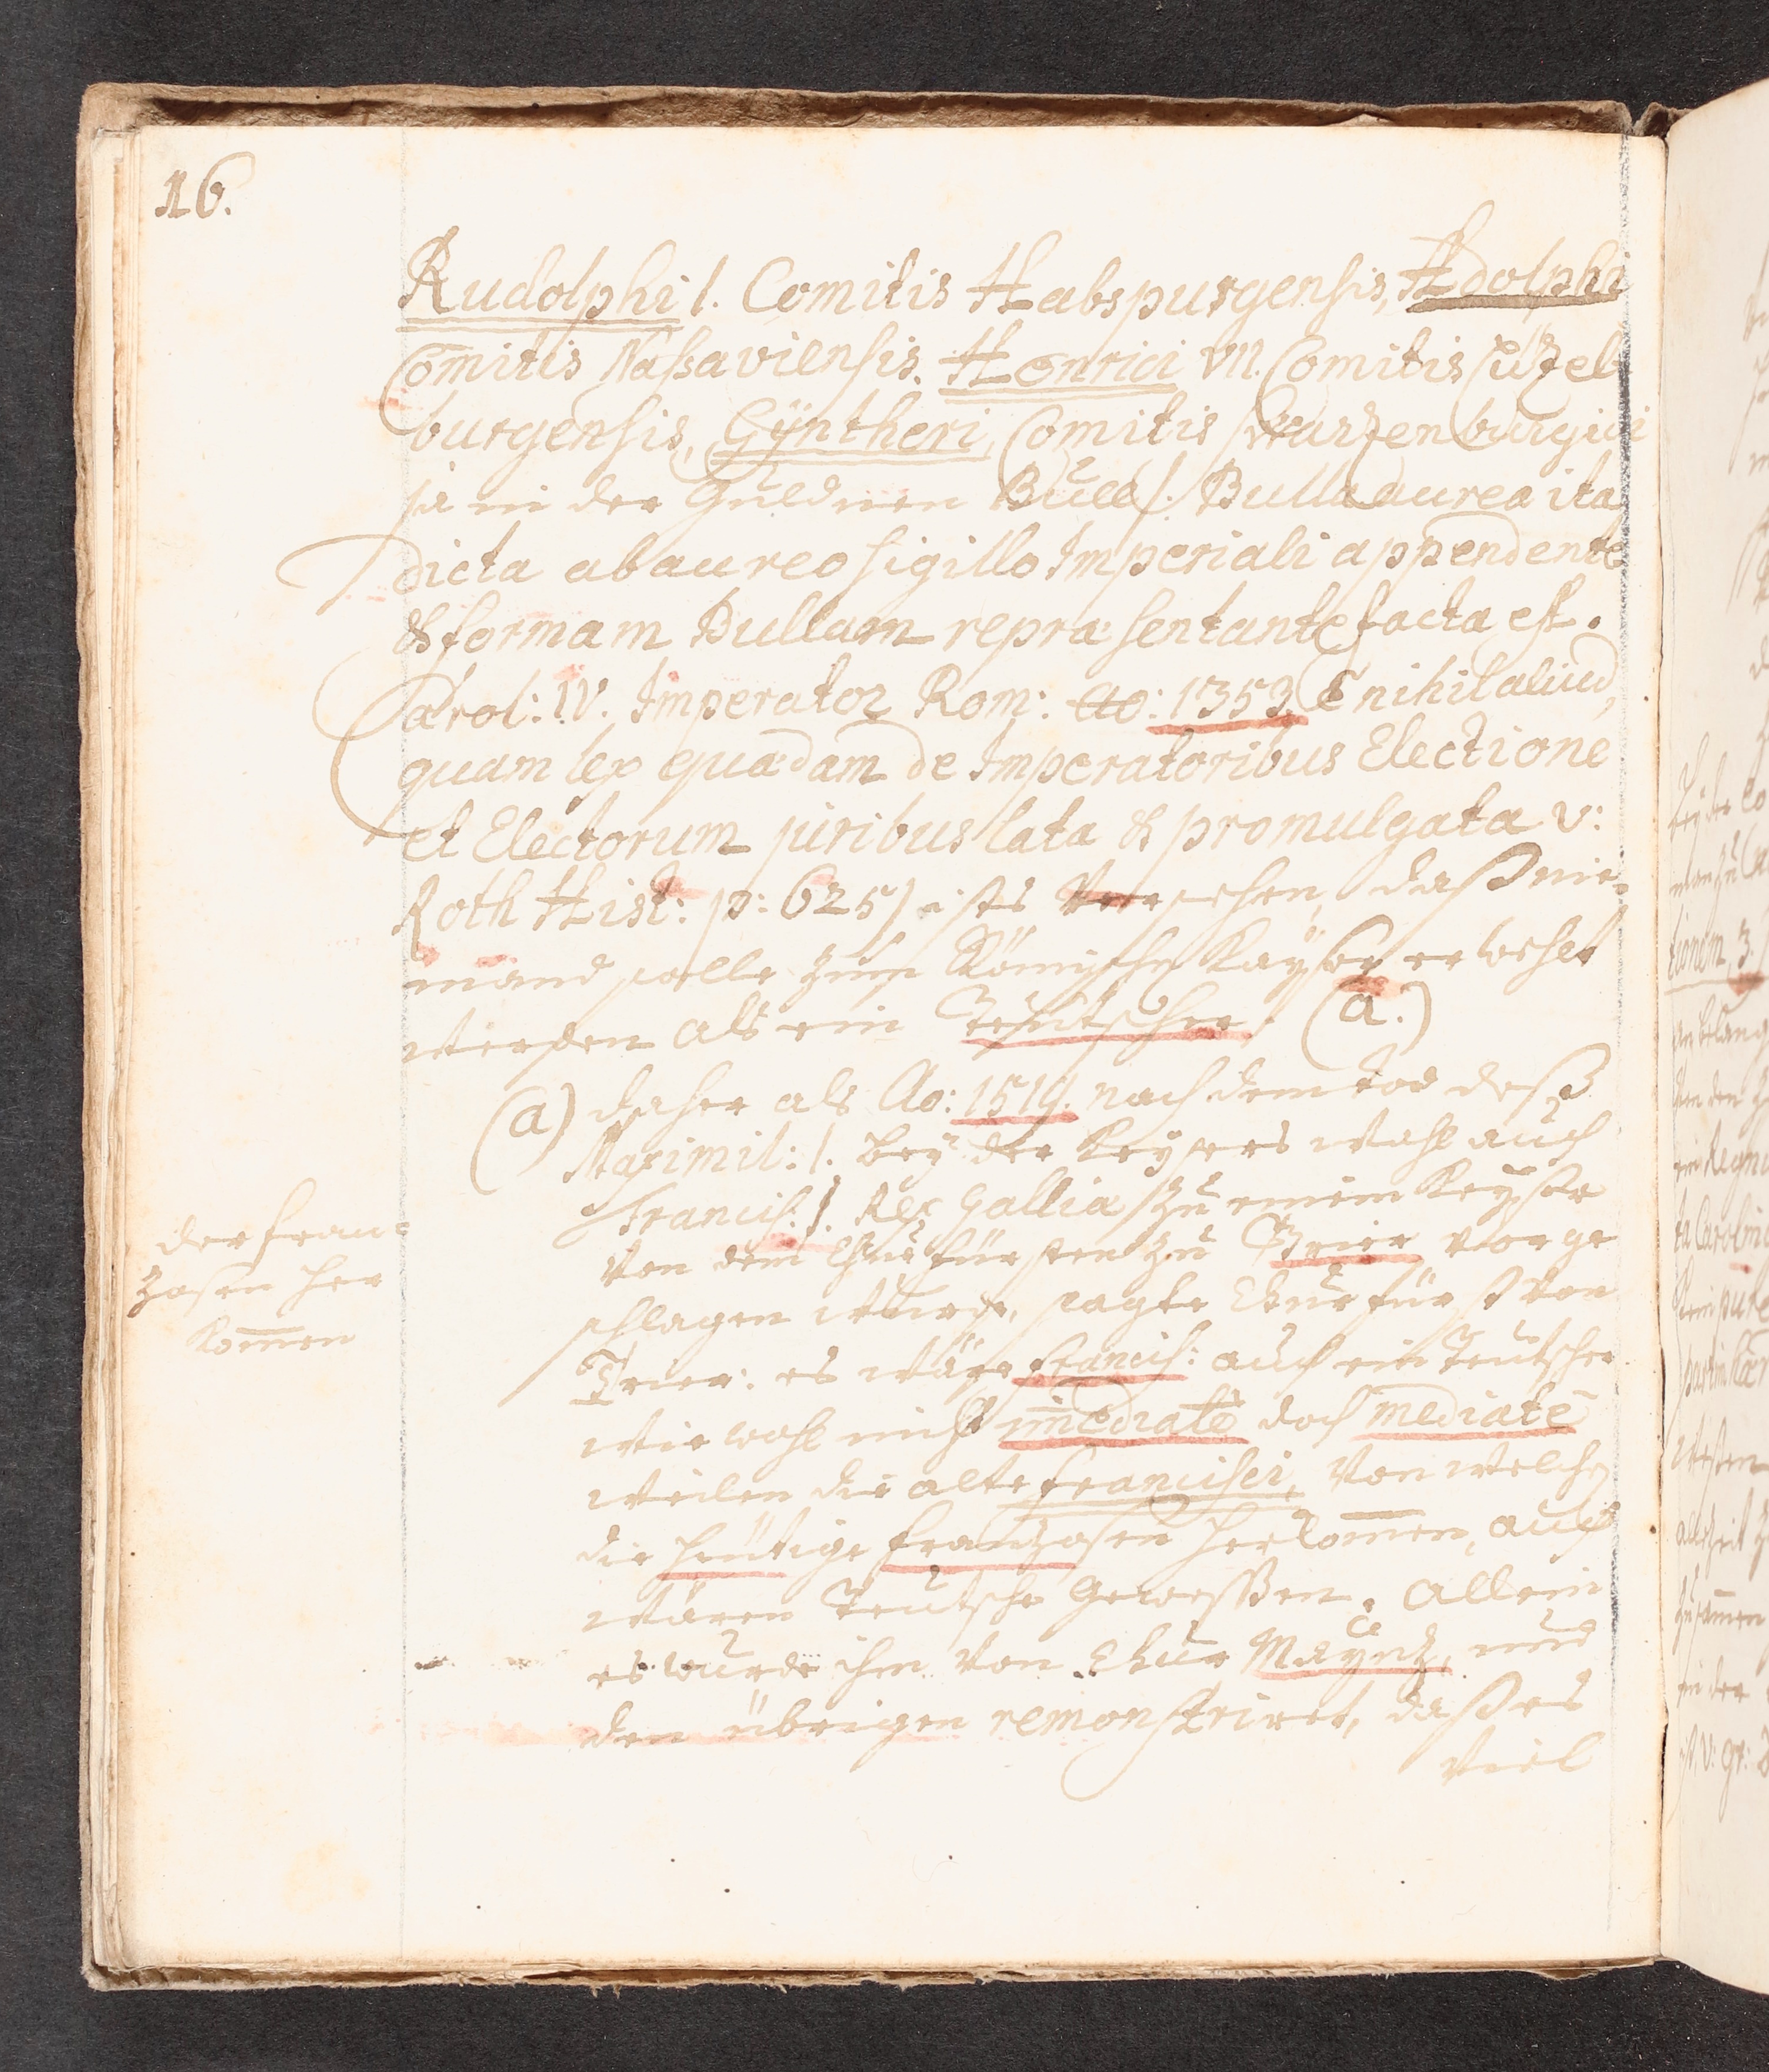 16.
Rudolphi I. Comitis Habspurgensis, Adolphi
Comitis Nassaviensis. Henrici VII. Comitis Lützel
burgensis, Gÿntheri, Comitis Swarzenburgici
ja in der Guldnen Bull (. Bulla aurea ita
dicta ab aureo sigillo Imperiali appendente
& formam Bullam repræsentante facta est.
Carol: IV. Imperator Rom: Ao: 1353. E nihil aliud,
quam lex quædam de Imperatoribus Electione
et Electorum juribus lata & promulgata v:
Roth Hist: p: 625) ists versehen, daß nie-
mand solle zum Römischen Kaÿser erwehlt
werden als ein Teutscher. (a.)
(a) daher als Ao: 1519. nach dem tod deß
Maximil: I. beÿ der Keysers wahl auch
Francis: I. Rex Gallia zu einem Keÿser
von dem Churfürsten zu Trier vorge
schlagen wurde, sagte Churfürst von
Trier: es wäre Francis: auch ein Teutscher
wie wohl nicht im̄ediatè doch mediatè
weilen die alte Francisci, von welchen
die heütige Franzosen herkom̄en, auch
wären Teutsche gewessen. Allein
es wurde ihm von Chur Mäyntz, und
den übrigen remonstriret, daß es
viel
der fran-
zosen her
kom̄en